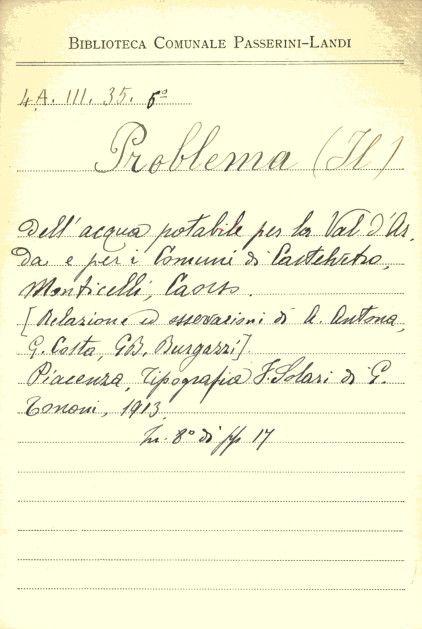 BIBLIOTECA COMUNALE PASSERINI-LANDI
4A. III. 35. 6º
Problema (Il)
Dell'acqua potabile per la Val d'Ar,
da e per i Comuni di Castelvetro,
Monticelli, Caorso.
[Relazione ed osservazioni di A. Antona,
G. Costa, GB. Burgazzi].
Piacenza, Tipografia F. Solari di G.
Tononi, 1913
In. 8º di pp 17